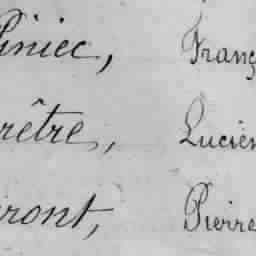 Piniec, Franç
rêtre, Lucien
ront, Pierre